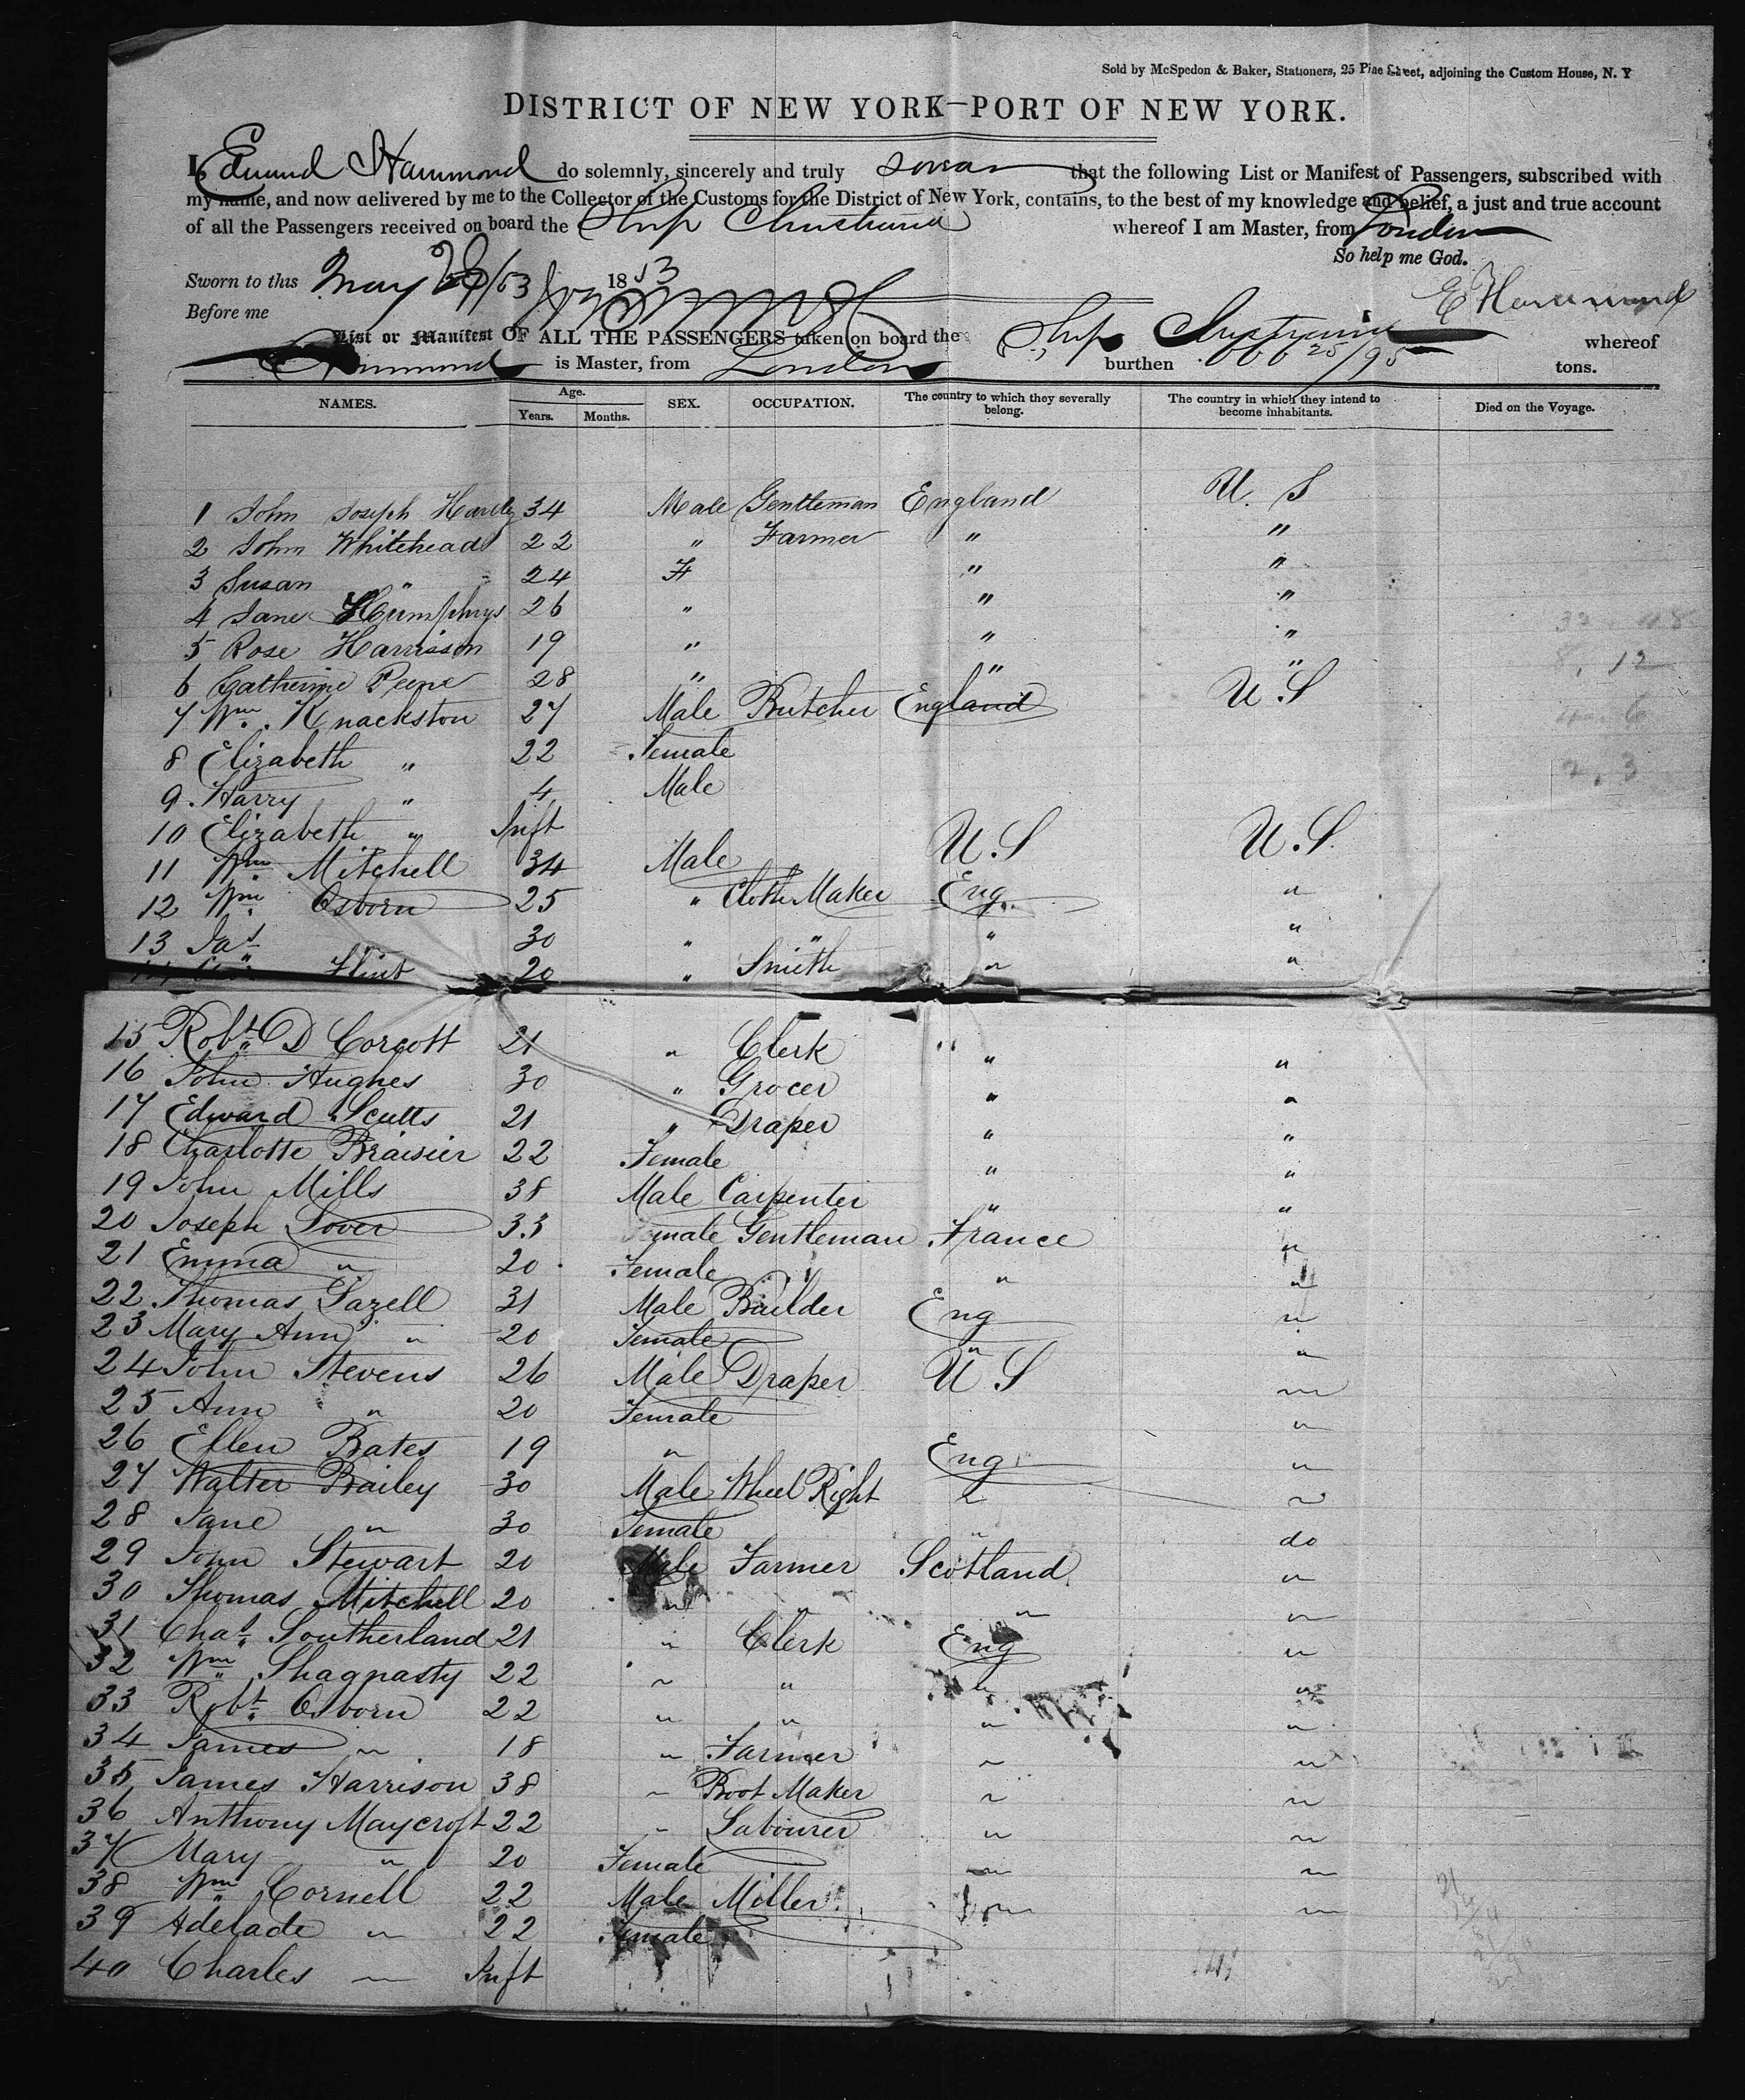 Sold by McSpedon & Baker, Stationers, 25 Pine Street, adjoining the Custom House, N. Y
DISTRICT OF NEW YORK—PORT OF NEW YORK.
I, Edmund Hammond do solemnly, sincerely and truly swear that the following List or Manifest of Passengers, subscribed with
my name, and now delivered by me to the Collector of the Customs for the District of New York, contains, to the best of my knowledge and belief, a just and true account
of all the Passengers received on board the Ship whereof I am Master, from London
So help me God.
Sworn to this May 1853
E Hammond
Before me
List or Manifest OF ALL THE PASSENGERS taken on board the Ship whereof
Hammond is Master, from London burthen tons.
NAMES. Age. Years. Months. SEX. OCCUPATION. The country to which they severally belong. The country in which they intend to become inhabitants. Died on the Voyage.
1 John Joseph Hardy 34 Male Gentleman England U. S
2 John Whitehead 22 " Farmer " "
3 Susan " 24 F " "
4 Jane Humphrys 26 " " "
5 Rose Harrison 19 " " "
6 Catherine 28 " " "
7 Wm. Knackston 27 Male Butcher England U.S
8 Elizabeth " 22 Female
9. Harry " 4 Male
10 Elizabeth " Inft
11 Wm Mitchell 34 Male U.S U.S.
12 Wm Osborn 25 " Cloth Maker Eng. "
13 Jas " 30 " " " "
Flint 20 " Smith " "
15 Robt D Corcott 21 " Clerk " "
16 John Hughes 30 " Grocer " "
17 Edward Scutts 21 " Draper " "
18 Charlotte Braisier 22 Female " "
19 John Mills 38 Male Carpenter " "
20 Joseph Lover 33 male Gentleman France "
21 Emma " 20 Female " "
22 Thomas Lazell 31 Male Builder Eng "
23 Mary Ann " 20 Female " "
24 John Stevens 26 Male Draper U S "
25 Ann " 20 Female "
26 Ellen Bates 19 " Eng "
27 Walter Bailey 30 Male Wheel Right " "
28 Jane " 30 Female " do
29 John Stewart 20 Male Farmer Scotland "
30 Thomas Mitchell 20 " " " "
31 Chas Southerland 21 " Clerk Eng "
32 Wm Shagnasty 22 " " " "
33 Robt Osborn 22 " " " "
34 James " 18 " Farmer " "
35 James Harrison 38 " Boot Maker " "
36 Anthony Maycroft 22 " Labourer " "
37 Mary " 20 Female " "
38 Wm Cornell 22 Male Miller " "
39 Adelade " 22 Female
40 Charles " Inft